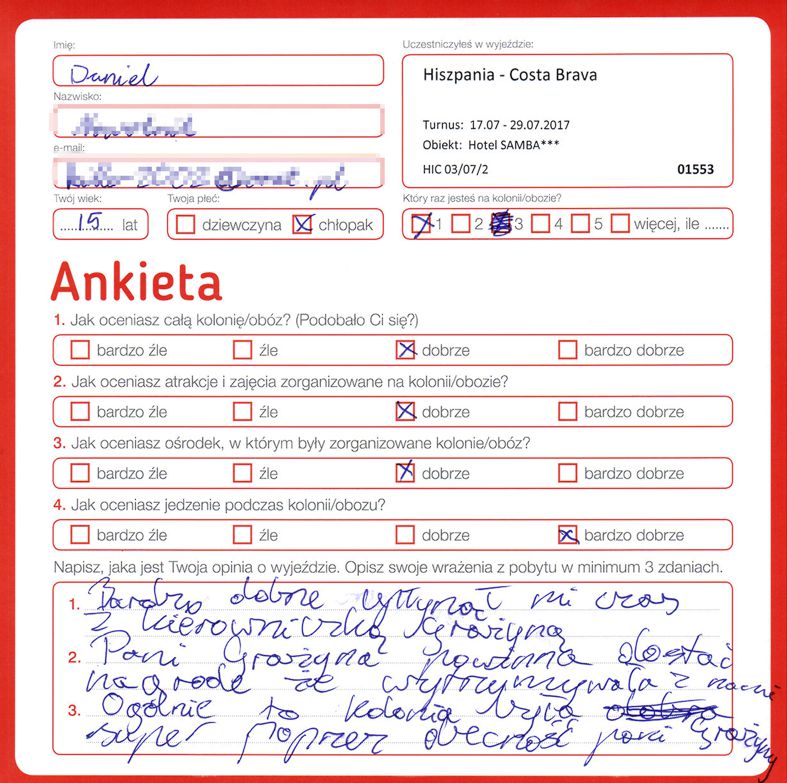 Imię:
Daniel
Uczestniczyłeś w wyjeździe:
Hiszpania - Costa Brava
Turnus: 17.07 - 29.07.2017
Obiekt: Hotel SAMBA***
HIC 03/07/2 01553
Nazwisko:
e-mail:
Twój wiek:
15 lat
Twoja płeć:
dziewczyna chłopak
Który raz jesteś na kolonii/obozie?
1 2 3 4 5 więcej, ile .......
Ankieta
1. Jak oceniasz całą kolonię/obóz? (Podobało Ci się?)
bardzo źle źle dobrze bardzo dobrze
2. Jak oceniasz atrakcje i zajęcia zorganizowane na kolonii/obozie?
bardzo źle źle dobrze bardzo dobrze
3. Jak oceniasz ośrodek, w którym były zorganizowane kolonie/obóz?
bardzo źle źle dobrze bardzo dobrze
4. Jak oceniasz jedzenie podczas kolonii/obozu?
bardzo źle źle dobrze bardzo dobrze
Napisz, jaka jest Twoja opinia o wyjeździe. Opisz swoje wrażenia z pobytu w minimum 3 zdaniach.
1. Bardzo dobrze mi czas
z kierowniczką Grażyną
2. Pani Grażyna powinna dostać
nagrodę że wytrzymywała z nami
3. Ogólnie to kolonia była
super poprzez obecność pani Grażyny